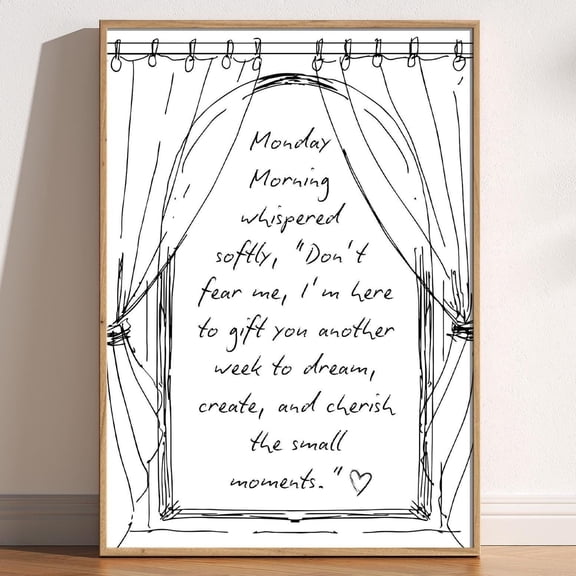 Monday
Morning
whispered
softly, "Don't
fear me, I'm here
to gift you another
week to dream,
create, and cherish
the small
moments." ♡